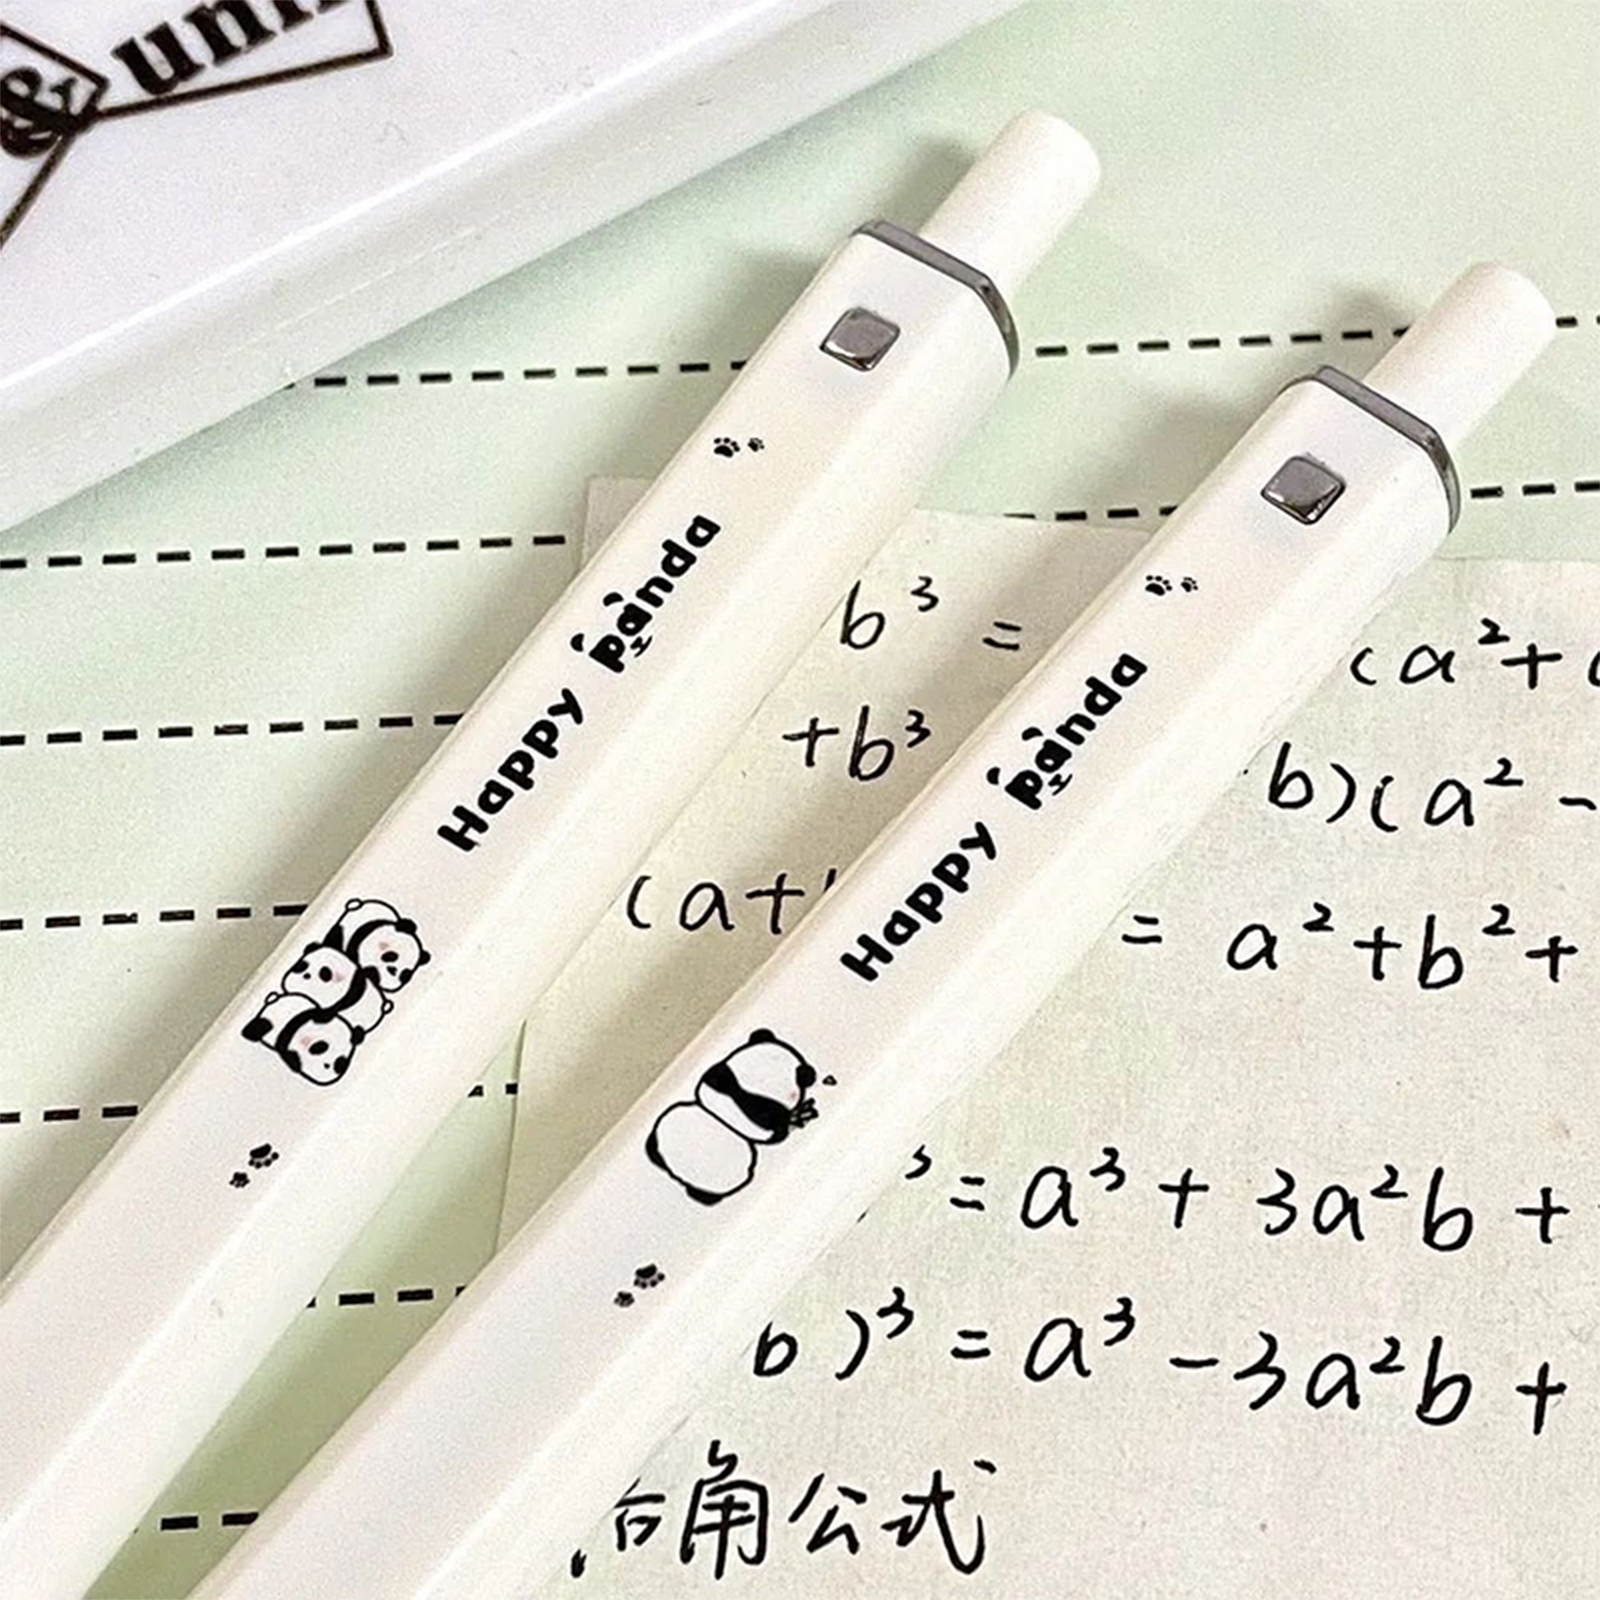 &
Happy panda
Happy panda
b³ = (a²+
+b³ b)(a² -
(a+ = a²+b²+
³ = a³ + 3a²b +
b)³ = a³ - 3a²b +
角公式